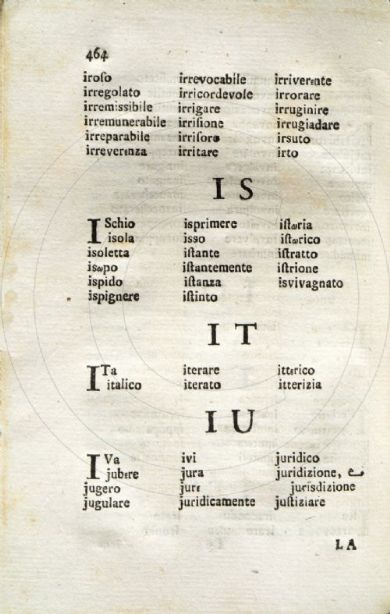 464
iroſo irrevocabile irriverεnte
irregolato irricordevole irrorare
irremiſſibile irrigare irruginire
irremunerabile irriſione irrugiadare
irreparabile irriſore irſuto
irreverεnza irritare irto
I S
ISchio iſprimere iſtωria
iſola iſſo iſtωrico
iſoletta iſtante iſtratto
iſωpo iſtantemente iſtrione
iſpido iſtanza iſvivagnato
iſpignere iſtinto
I T
ITa iterare ittεrico
italico iterato itterizia
I U
IVa ivi juridico
jubεre jura juridizione, e
jugero jurε jurisdizione
jugulare juridicamente juſtiziare
LA